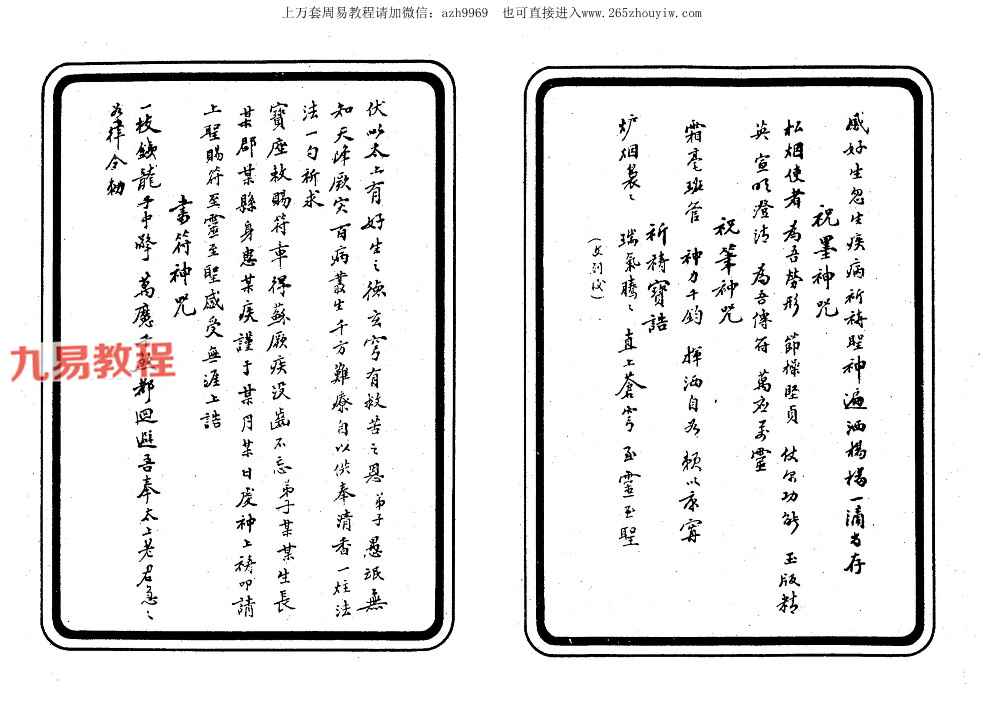 上万套周易教程请加微信：azh9969　也可直接进入www.265zhouyiw.com
感好生忽生疾病祈祷聖神遍洒楊楊一滴当存
祝墨神咒
松烟使者 為吾勞形 節操堅貞 仗尔功能 玉版精
英 宣明澄清 為吾傳符 萬应萬靈
祝筆神咒
霜毫班管 神力千鈞 揮洒自如 賴以康寧
祈祷寶誥
炉烟裊〻 瑞氣騰〻 直上蒼穹 至靈至聖
伏以太上有好生之德玄穹有救苦之恩弟子愚氓無
知天降厥灾百病叢生千方難療自以供奉清香一炷法
法一句祈求
寶座敕賜符章得蘇厥疾没齒不忘弟子某某生長
某郡某縣身患某疾謹于某月某日虔神上祷叩請
上聖賜符至靈至聖感受無涯上誥
書符神咒
一枝鉄龍手中降萬魔
都迴避吾奉太上老君急〻
如律令勅
九易教程